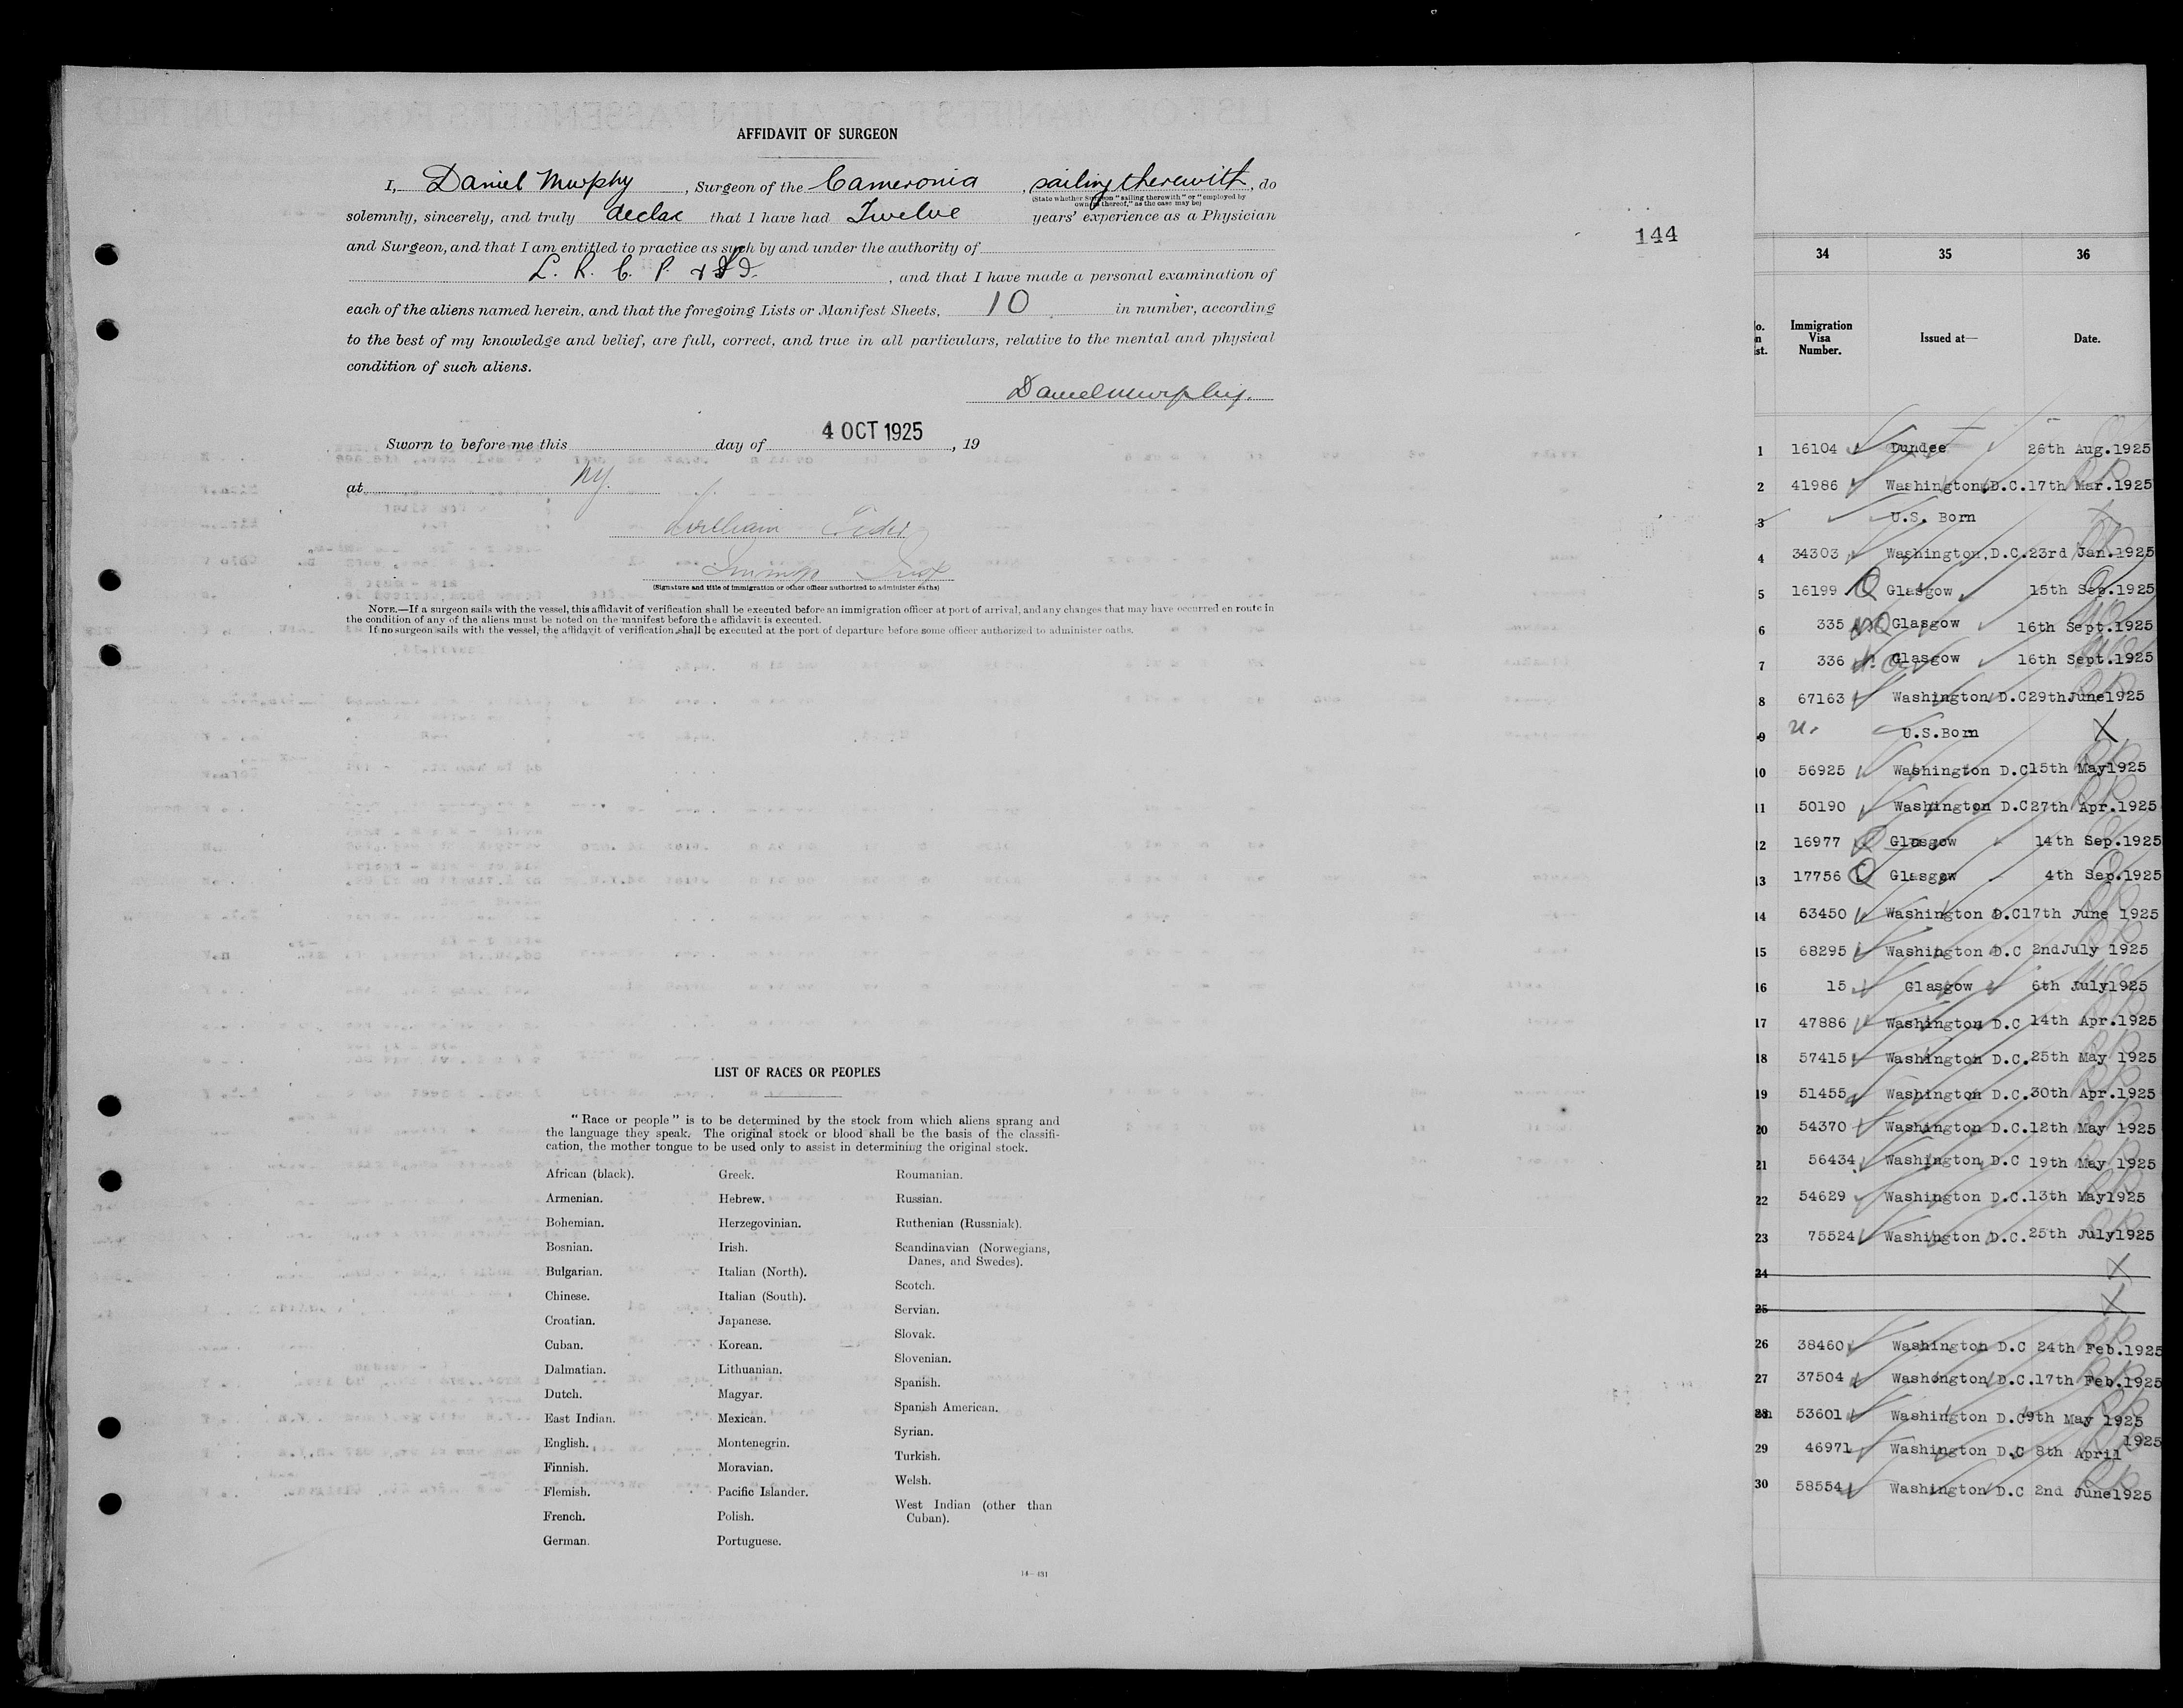 AFFIDAVIT OF SURGEON
I, Daniel Murphy, Surgeon of the Cameronia, sailing therewith, do
(State whether Surgeon "sailing therewith" or "employed by
owners thereof," as the case may be)
solemnly, sincerely, and truly declare that I have had Twelve years' experience as a Physician
and Surgeon, and that I am entitled to practice as such by and under the authority of
L. R. C. P. & S I., and that I have made a personal examination of
each of the aliens named herein, and that the foregoing Lists or Manifest Sheets, 10 in number, according
to the best of my knowledge and belief, are full, correct, and true in all particulars, relative to the mental and physical
condition of such aliens.
Daniel Murphy.
Sworn to before me this day of 4 OCT 1925, 19
at NY.
William
(Signature and title of immigration or other officer authorized to administer oaths)
NOTE.—If a surgeon sails with the vessel, this affidavit of verification shall be executed before an immigration officer at port of arrival, and any changes that may have occurred en route in
the condition of any of the aliens must be noted on the manifest before the affidavit is executed.
If no surgeon sails with the vessel, the affidavit of verification shall be executed at the port of departure before some officer authorized to administer oaths.
LIST OF RACES OR PEOPLES
"Race or people" is to be determined by the stock from which aliens sprang and
the language they speak. The original stock or blood shall be the basis of the classifi-
cation, the mother tongue to be used only to assist in determining the original stock.
African (black).
Armenian.
Bohemian.
Bosnian.
Bulgarian.
Chinese.
Croatian.
Cuban.
Dalmatian.
Dutch.
East Indian.
English.
Finnish.
Flemish.
French.
German.
Greek.
Hebrew.
Herzegovinian.
Irish.
Italian (North).
Italian (South).
Japanese.
Korean.
Lithuanian.
Magyar.
Mexican.
Montenegrin.
Moravian.
Pacific Islander.
Polish.
Portuguese.
Roumanian.
Russian.
Ruthenian (Russniak).
Scandinavian (Norwegians,
Danes, and Swedes).
Scotch.
Servian.
Slovak.
Slovenian.
Spanish.
Spanish American.
Syrian.
Turkish.
Welsh.
West Indian (other than
Cuban).
144
34 35 36
Immigration
Visa
Number.
Issued at—
Date.
1 16104 Dundee 26th Aug.1925
2 41986 Washington,D.C.17th Mar.1925
3 U.S. Born
4 34303 Washington,D.C.23rd Jan.1925
5 16199 Q Glasgow 15th Sep.1925
6 335 Glasgow 16th Sept.1925
7 336 Glasgow 16th Sept.1925
8 67163 Washington D.C29thJune1925
9 U.S.Born X
10 56925 Washington D.C15th May1925
11 50190 Washington D.C27th Apr.1925
12 16977 Q Glasgow 14th Sep.1925
13 17756 Q Glasgow 4th Sep.1925
14 63450 Washington D.C17th June 1925
15 68295 Washington D.C 2ndJuly 1925
16 15 Glasgow 6th July1925
17 47886 Washington D.C 14th Apr.1925
18 57415 Washington D.C.25th May 1925
19 51455 Washington D.C.30th Apr.1925
20 54370 Washington D.C.12th May 1925
21 56434 Washington D.C 19th May 1925
22 54629 Washington D.C.13th May1925
23 75524 Washington D.C.25th July1925
24 X
25 X
26 38460 Washington D.C 24th Feb.1925
27 37504 Washongton D.C.17th Feb.1925
28 53601 Washington D.C9th May 1925
29 46971 Washington D.C 8th April 1925
30 58554 Washington D.C 2nd June1925